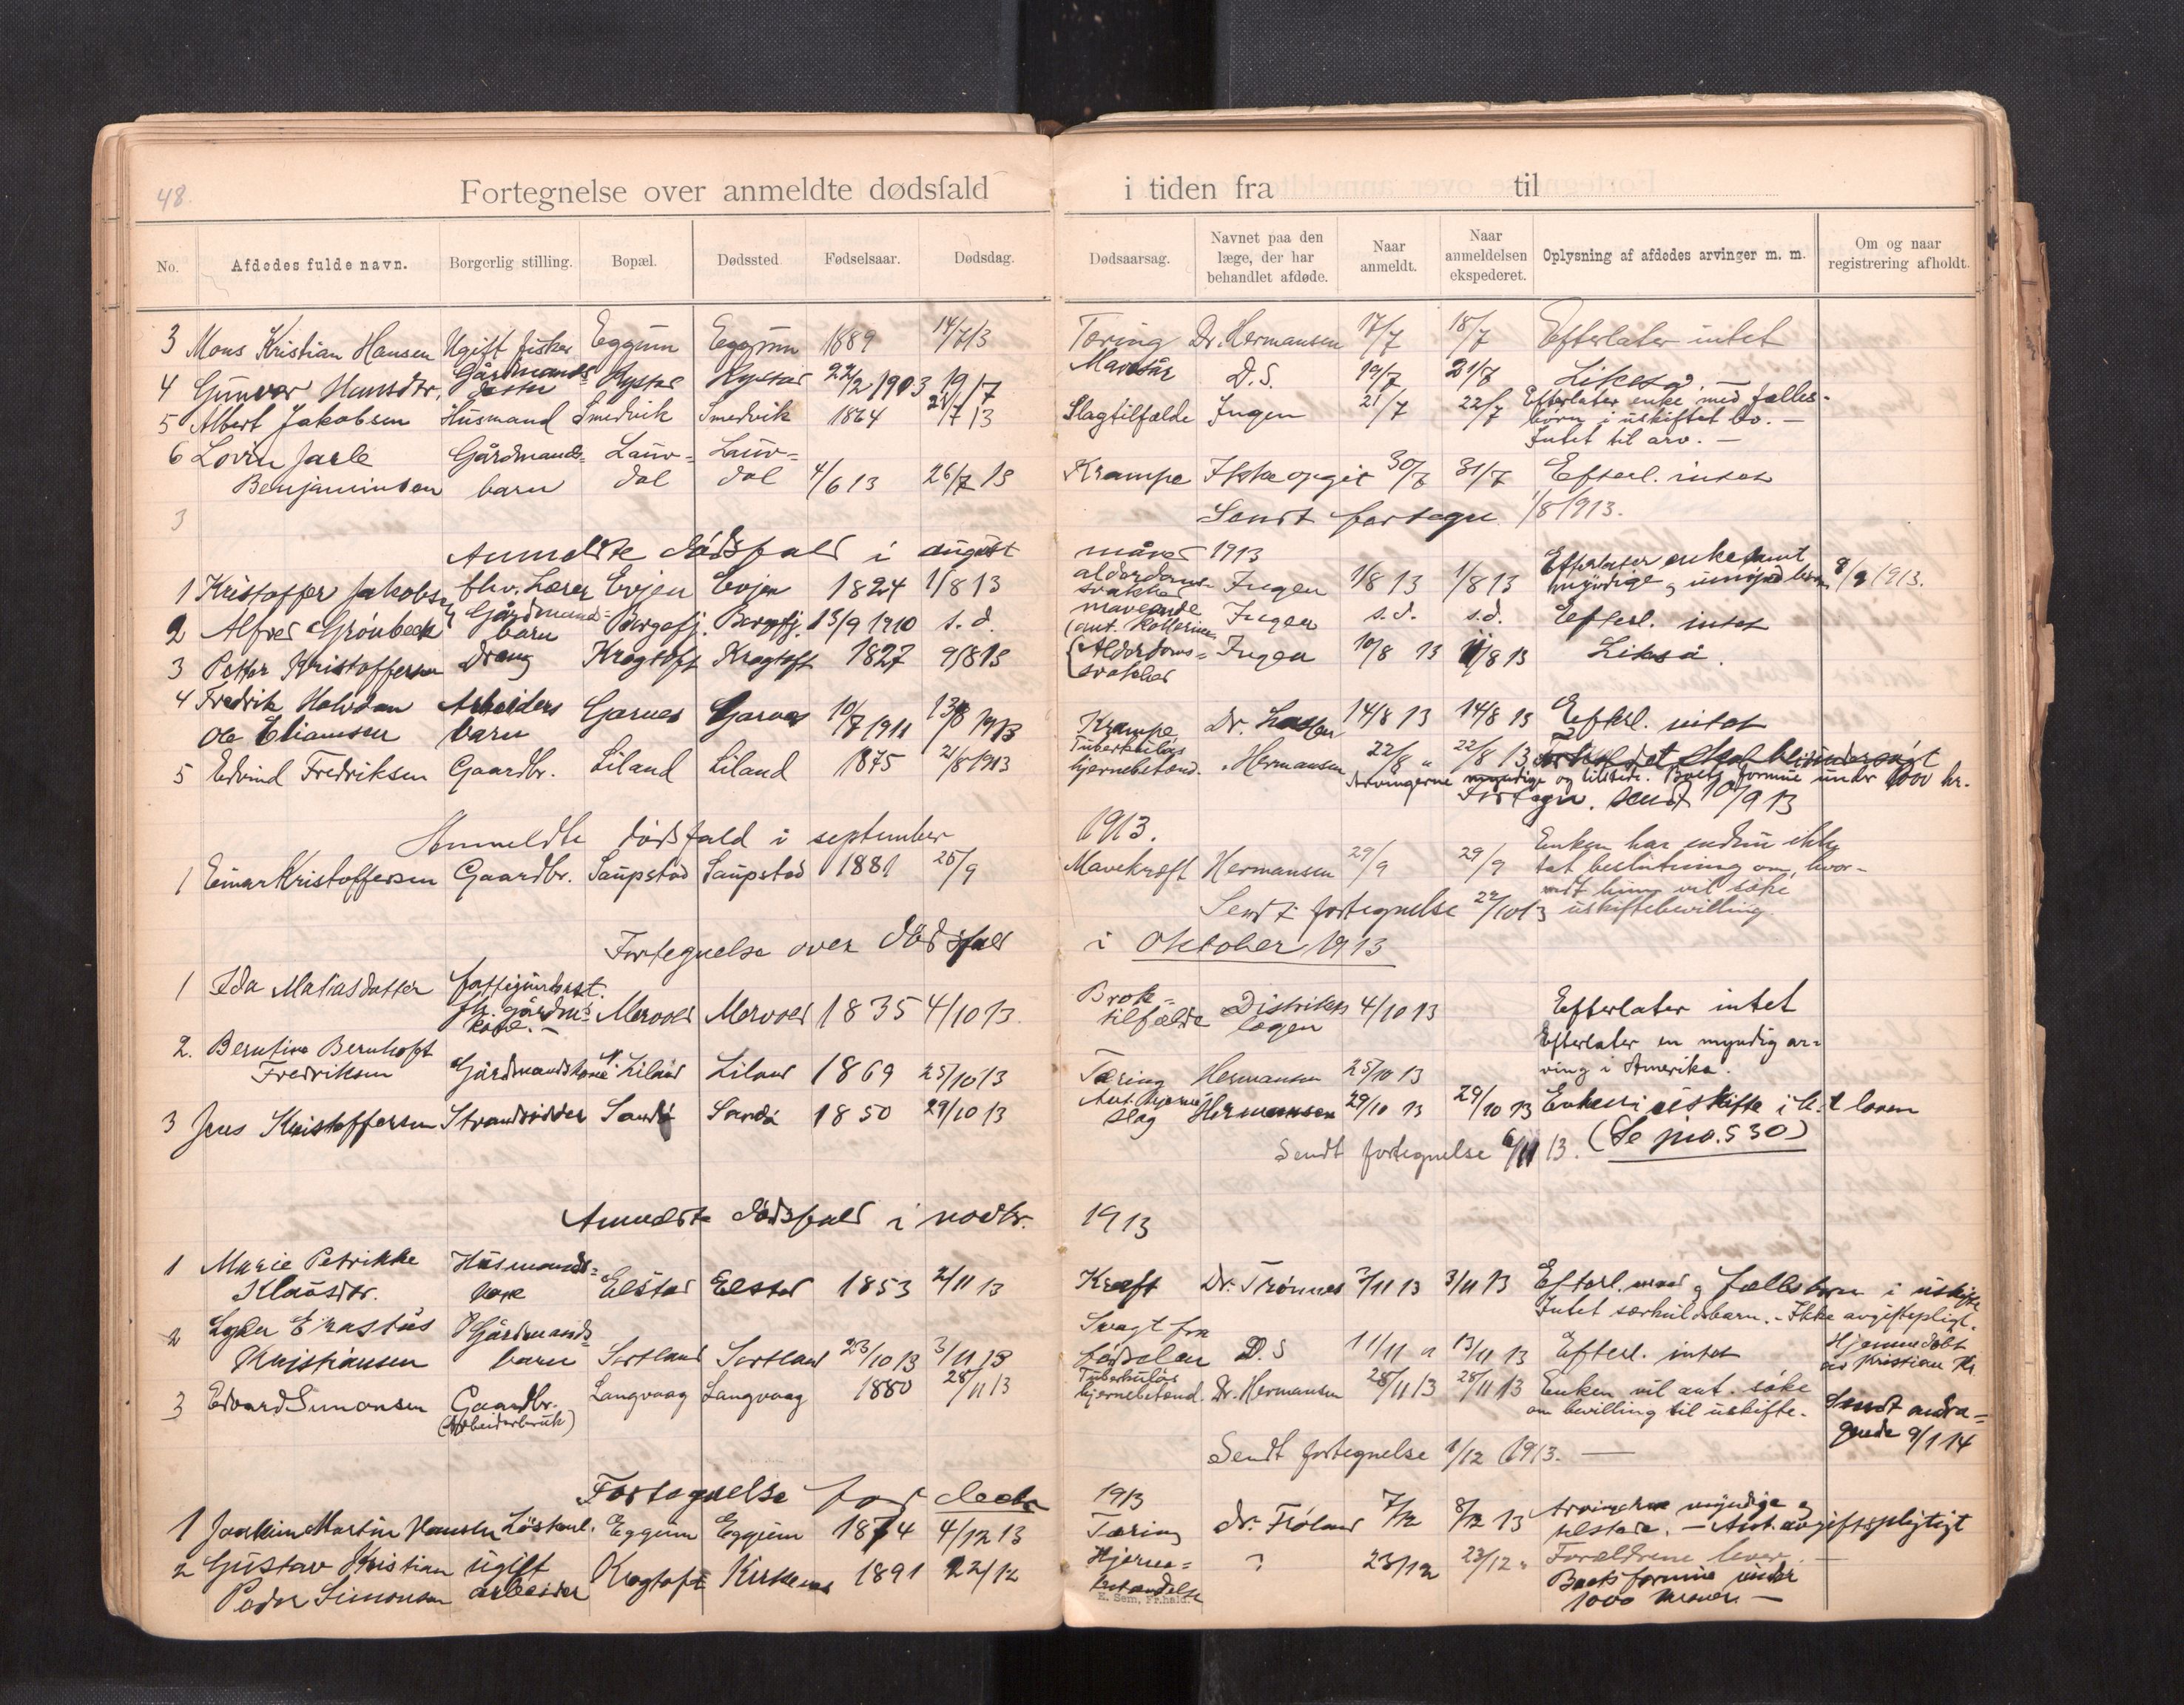 48.
Fortegnelse over anmeldte dødsfald i tiden fra til
No. Afdødes fulde navn. Borgerlig stilling. Bopæl. Dødssted Fødselsaar. Dødsdag. Dødsaarsag. Navnet paa den læge, der har behandlet afdøde. Naar anmeldt. Naar anmeldelsen ekspederet. Oplysning af afdødes arvinger m. m. Om og naar registrering afholdt.
3 Mons Kristian Hansen Ugift fisker Eggum Eggum 1889 14/7 13 Tæring Dr. Hermansen 17/7 18/7 Efterlater intet
4 Gunvor Hansdtr. Gårdmands- datter 22/2 1903 19/7 D.S. 19/7 21/7 Likeså
5 Albert Jakobsen Husmand Smedvik Smedvik 1864 21/7 13 Slagtilfælde Ingen 21/7 22/7 Efterlater enke med fælles-
børn i uskiftet bo. —
Intet til arv. —
6 Lovin Jarle Gårdmands- Lauv- Lauv-
Benjaminsen barn dal dal 4/6 13 26/7 13 Krampe Ikke opgit 30/7 31/7 Efterl. intet
3 Sendt fortegn. 1/8 1913.
Anmeldte dødsfald i august måned 1913
1 Kristoffer Jakobsen fhv. Lærer Evjen Evjen 1824 1/8 13 alderdoms- svakhed Ingen 1/8 13 1/8 13 Efterlater enke samt
myndige g umynd. børn 9/9 1913.
2 Alfred Grönbeck Gårdmands- barn Borgefj. Borgefj. 13/9 1910 s.d. maveonde Ingen s.d. s.d. Efterl. intet
3 Petter Kristoffersen Dreng Kragtoft Kragtoft 1827 9/8 13 Alderdoms- svakhed Ingen 10/8 13 11/8 13 Likeså.
4 Fredrik Halvdan Arbeiders
Ole Eliassen barn Garnes Garnes 10/7 1911 13/8 1913 Krampe Dr. 14/8 13 14/8 13 Efterl. intet
5 Edvind Fredriksen Gaardbr. Liland Liland 1875 21/8 1913 Tuberkuløs hjernebetænd. Hermansen 22/8 " 22/8 13
Arvingerne myndige og tilstede. Boets formue under 1000 kr.
Fortegn. sendt 10/9 13
Anmeldte dødsfald i september 1913.
1 Einar Kristoffersen Gaardbr. Saupstad Saupstad 1881 25/9 Mavekræft Hermansen 29/9 29/9 Enken har endnu ikke
tat beslutning om, hvor-
vidt hun vil søke
uskiftebevilling.
Sendt fortegnelse 22/10 13
Fortegnelse over dødsfald i oktober 1913
1 Ida Matiasdatter fattigunderst.
fhv. gårdm.s kone. — Mervold Mervold 1835 4/10 13. Brok- tilfælde Distrikts lægen 4/10 13 Efterlater intet
2. Berntine Bernhoft
Fredriksen Gårdmandskone Liland Liland 1869 25/10 13 Tæring Hermansen 25/10 13 Efterlater en myndig ar-
ving i Amerika.
3 Jens Kristoffersen Strandsidder Sandø Sandø 1850 29/10 13 Ant. hjerne- slag Hermansen 29/10 13 29/10 13 Enken i uskifte i h.t loven
Sendt fortegnelse 6/11 13. (Se jno. 530)
Anmeldte dødsfald i novbr. 1913
1 Marie Petrikke Husmands-
Klausdtr. kone Elstad Elstad 1853 2/11 13 Kræft Dr. Trönnes 3/11 13 3/11 13 Efterl. mand g fællesbørn i uskifte
Intet særkuldsbarn. - Ikke avgiftspligt.
2 Lyder Erastus Gårdmands
Kristiansen barn Sortland Sortland 23/10 13 3/11 13 Svagt fra fødselen D.S 11/11 " 13/11 13 Efterl. intet Hjemmedøbt
av Kristian Kr.
3 Edvard Simonsen Gaardbr.
(Arbeiderbruk) Langvaag Langvaag 1880 28/11 13 Tuberkuløs hjernebetænd. Dr. Hermansen 28/11 13 28/11 13 Enken vil ant. søke
om bevilling til uskifte. Sendt andra-
gende 9/1 14
Sendt fortegnelse 1/12 1913. —
Fortegnelse for decbr 1913
1 Joakim Martin Hansen Löskarl. Eggum Eggum 1874 4/12 13 Tæring Dr. Fröland 7/12 8/12 13 Arvingerne myndige g
tilstede. — Ant. avgiftspligtigt
2 Gustav Kristian ugift
Peder Simonsen arbeider Kragtoft Kirkenes 1891 22/12 Hjerne- betændelse ? 23/12 23/12 " Forældrene lever. —
Boets formue under
1000 kroner. —
E. Sem, Fr.hald.